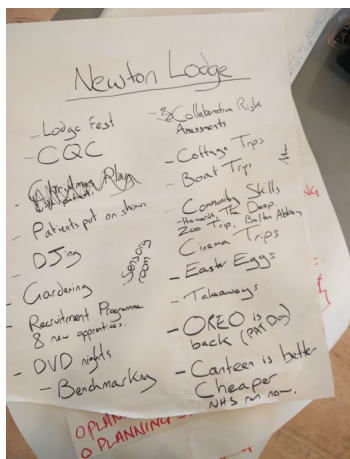 Newton Lodge
- Lodge Fest
- CQC
- Patients put on shows
- DJing
- Gardening
- Sensory room
- Recruitment Programme
& new apprentices.
- DVD nights
- Benchmarking
- Collaborative Risk
Assessments
- Cottage Trips
- Boat Trips
- Community Skills
- Haworth, The Deep,
Zoo Trip, Bolton Abbey
- Cinema Trips
- Easter Eggs
- Takeaways
- OREO is
back (PAT Dog)
- Canteen is better
Cheaper
NHS run now.
O PLANNING